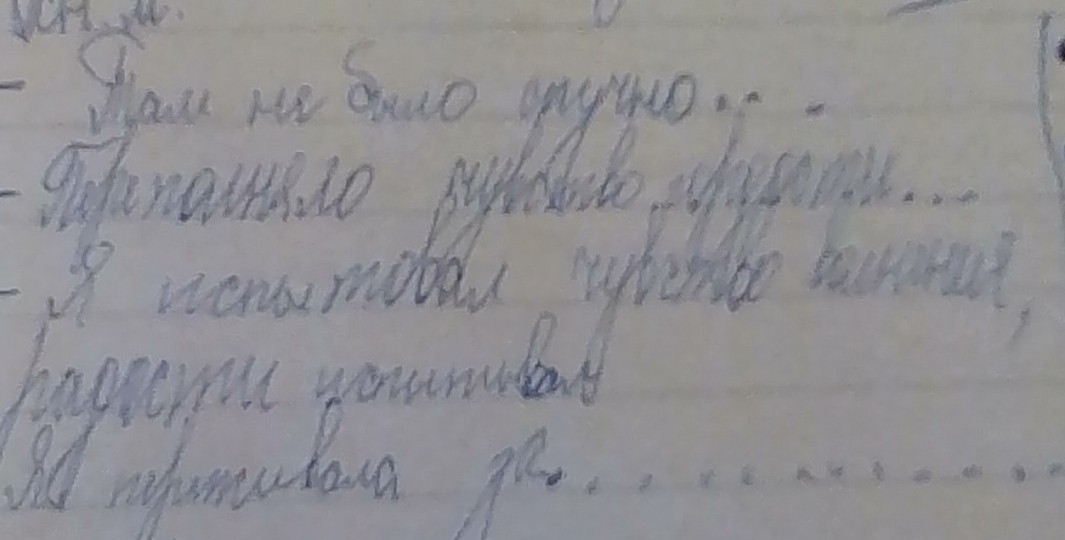 - Там не было скучно...
- Приполняло чувство радости...
- Я испытовал чувство волнения,
радости испытывал
Я переживала за...............